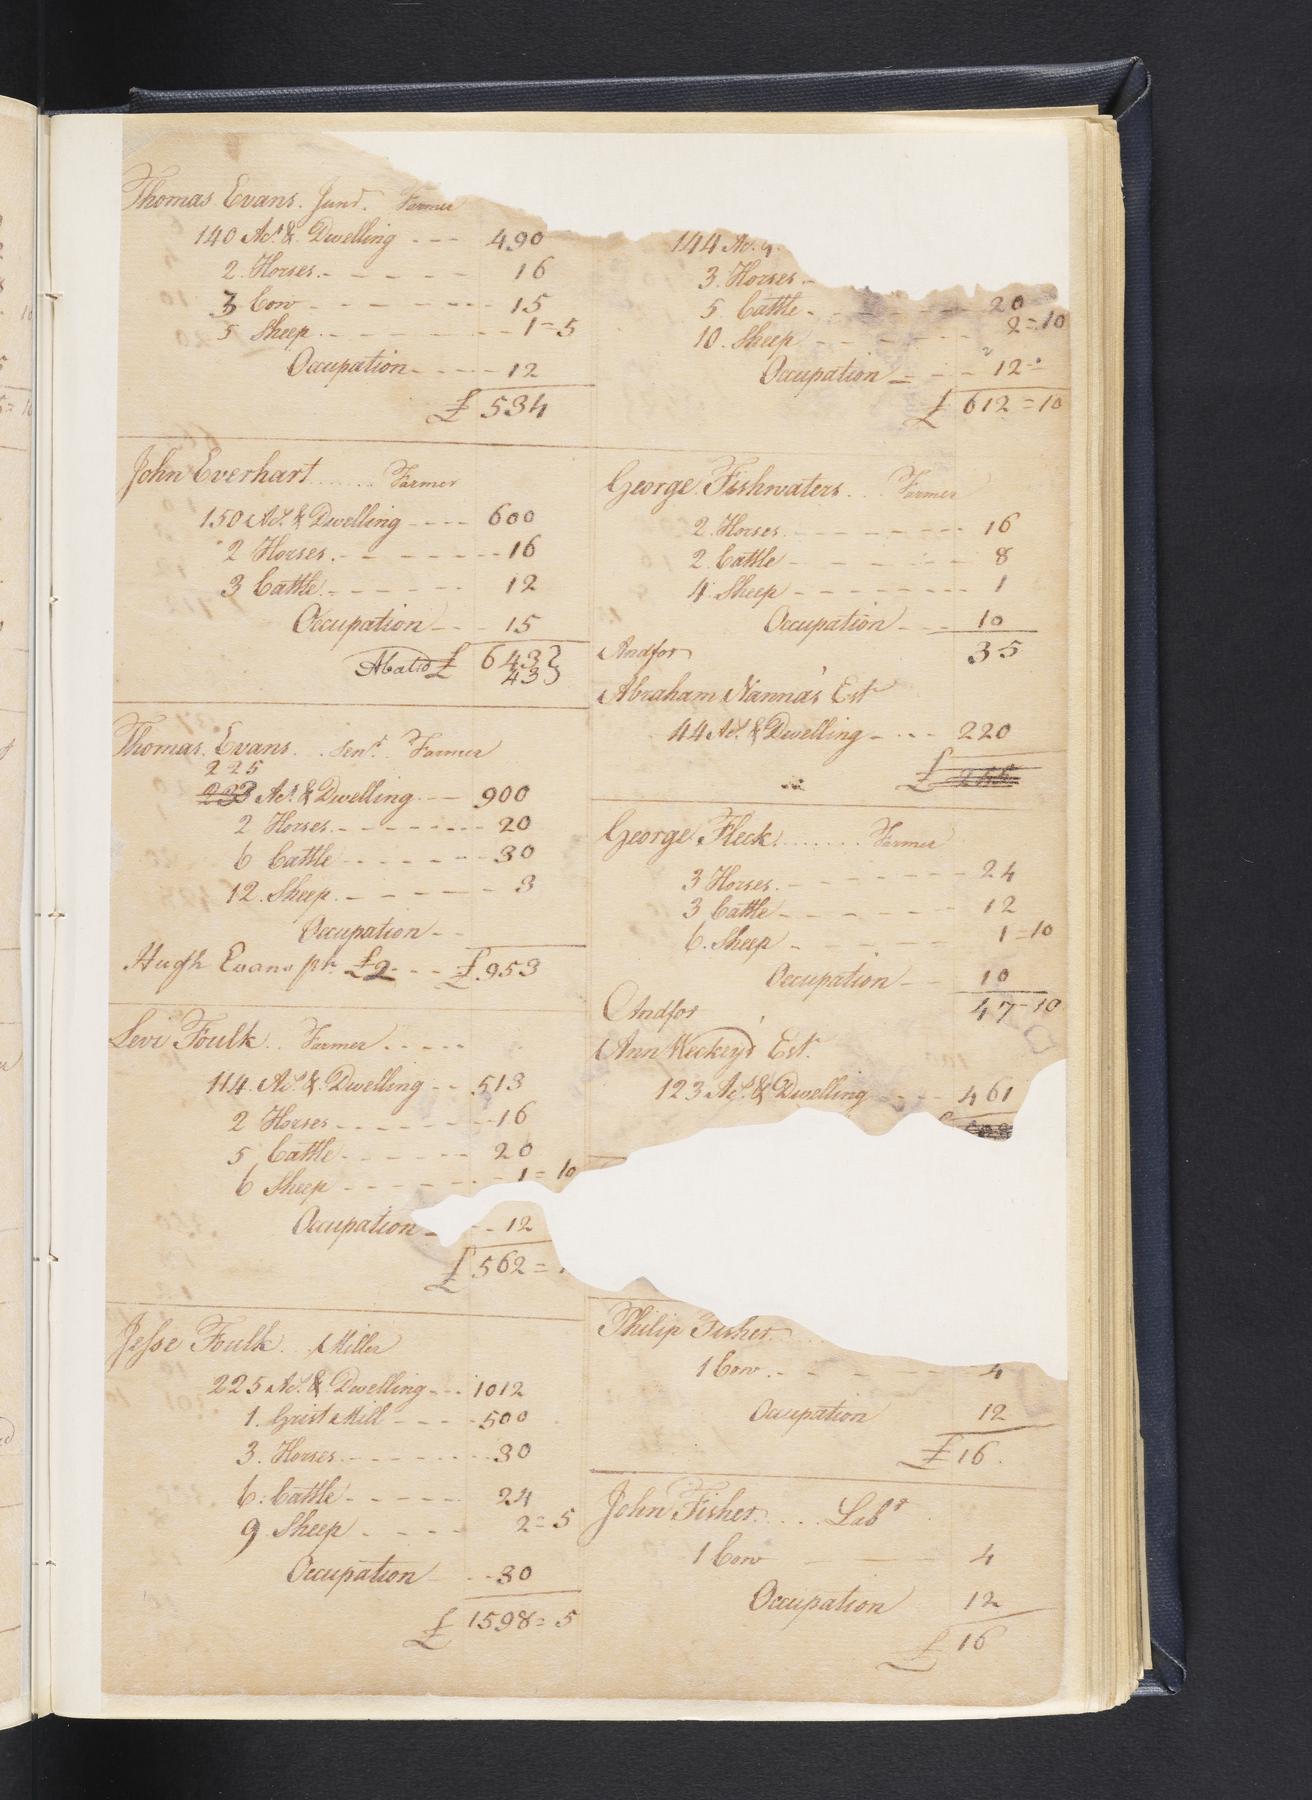 Thomas Evans. Junr. Farmer
140 Acs. & Dwelling - - - 490
2 Horses - - - - - 16
3 Cow - - - - - - 15
5 Sheep - - - - - - 1=5
Occupation - - - - 12
£ 534
John Everhart ...... Farmer
150 Acs. & Dwelling - - - - 600
2 Horses - - - - - - - 16
3 Cattle - - - - - - 12
Occupation - - - 15
Abated £ 643 }
43 }
Thomas Evans. . Senr. Farmer
225
233 Acs. & Dwelling - - - 900
2 Horses - - - - - - - 20
6 Cattle - - - - - - - 30
12 Sheep - - - - - - 3
Occupation - -
Hugh Evans pr. £2 - - - £ 953
Levi Foulk . . Farmer . . . . .
114 Acs. & Dwelling - - 513
2 Horses - - - - - - - 16
5 Cattle - - - - - - 20
6 Sheep - - - - - - 1=10
Occupation - - - 12
£ 562 =
Jesse Foulk . . Miller
225 Acs. & Dwelling - - - 1012
1. Grist Mill - - - - 500
3. Horses - - - - - - 30
6. Cattle - - - - - 24
9 Sheep - - - - 2=5
Occupation - - - 30
£ 1598=5
144 Ac.
3 Horses -
5 Cattle - - - - - - 20
10. Sheep - - - - - - 2=10
Occupation - - - 12=
£ 612=10
George Fishwaters . . . Farmer
2 Horses - - - - - - 16
2 Cattle - - - - - - 8
4 Sheep - - - - - - - 1
Occupation - - - 10
Andfor 35
Abraham Nanna's Est
44 Acs. & Dwelling - . . . 220
£ 255
George Fleck ....... Farmer
3 Horses - - - - - - 24
3 Cattle - - - - - - 12
6. Sheep - - - - - 1=10
Occupation - - 10
Andfor 47-10
Ann Heckey's Est.
123 Acs. & Dwelling - - - - 461
Philip Fisher
1 Cow - - - - - - 4
Occupation 12
£ 16.
John Fisher . . . . Labr
1 Cow 4
Occupation 12
£ 16